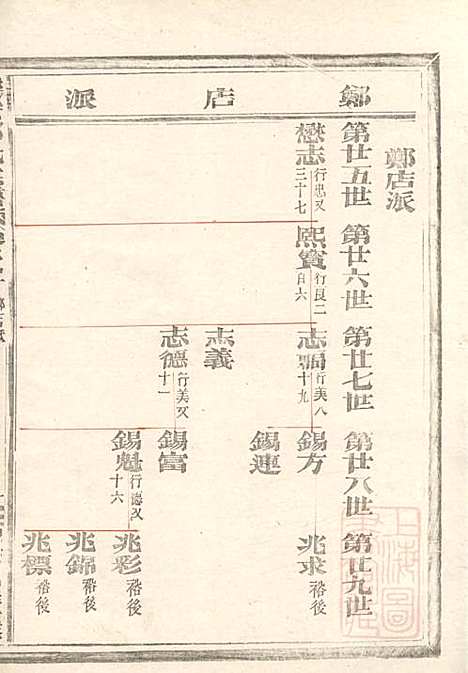 鄭店派
鄭店派
第廿五世
懋志行忠又三十七
第廿六世
熙寳行良二百六
第廿七世
志鵾行美八十九
志義
志德行美又十一
第廿八世
錫方
錫連
錫富
錫魁行德又十六
第廿九世
兆求
裕後
兆彩
裕後
兆錦
裕後
兆標
裕後